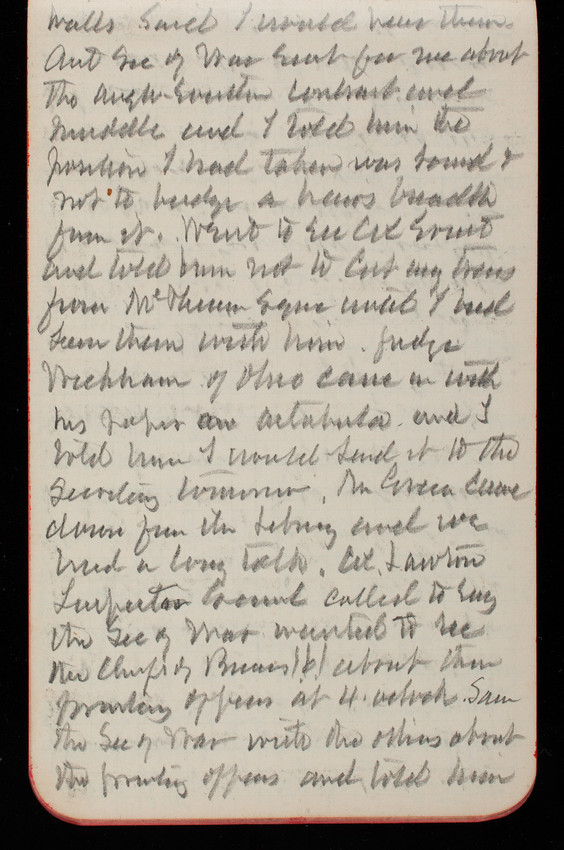 walls said I would hear them.
Ast Sec of War sent for me about
the contract and
muddle and I told him the
position I had taken was sound &
not to budge a hairs breadth
from it. Went to see Col Ernst
and told him not to cut any trees
from McPherson Sqre until I had
seen them with him. Judge
Wickham of Ohio came in with
his paper on Ashtabula and I
told him I would send it to the
Secretary tomorrow. Mr Green came
down from the Library and we
had a long talk. Col. Lawton
Inspector Genl called to say
the Sec of War wanted to see
the Chiefs of Bureaus about their
printing offices at 4 oclock. Saw
the Sec of War with the others about
the printing offices and told him